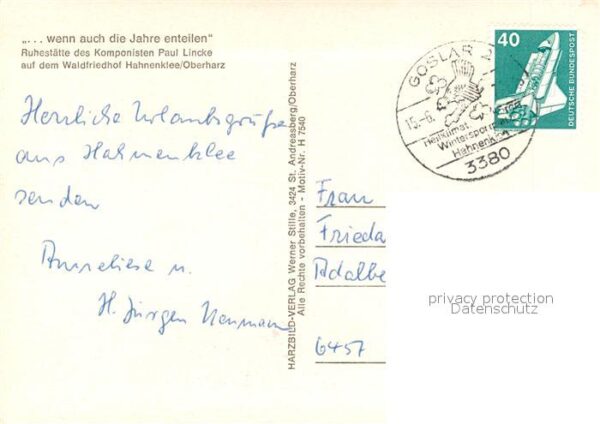 „... wenn auch die Jahre enteilen"
Ruhestätte des Komponisten Paul Lincke
auf dem Waldfriedhof Hahnenklee/Oberharz
Herzliche Urlaubsgrüße
aus Hahnenklee
senden
Anneliese u.
H. Jürgen Naumann
HARZBILD-VERLAG Werner Stille, 3424 St. Andreasberg/Oberharz
Alle Rechte vorbehalten - Motiv-Nr. H 7540
GOSLAR 2
15.-6.
Heilklimat.
Wintersport
Hahnenkl
3380
40
DEUTSCHE BUNDESPOST
Frau
Frieda
Adalbe
6457
privacy protection
Datenschutz